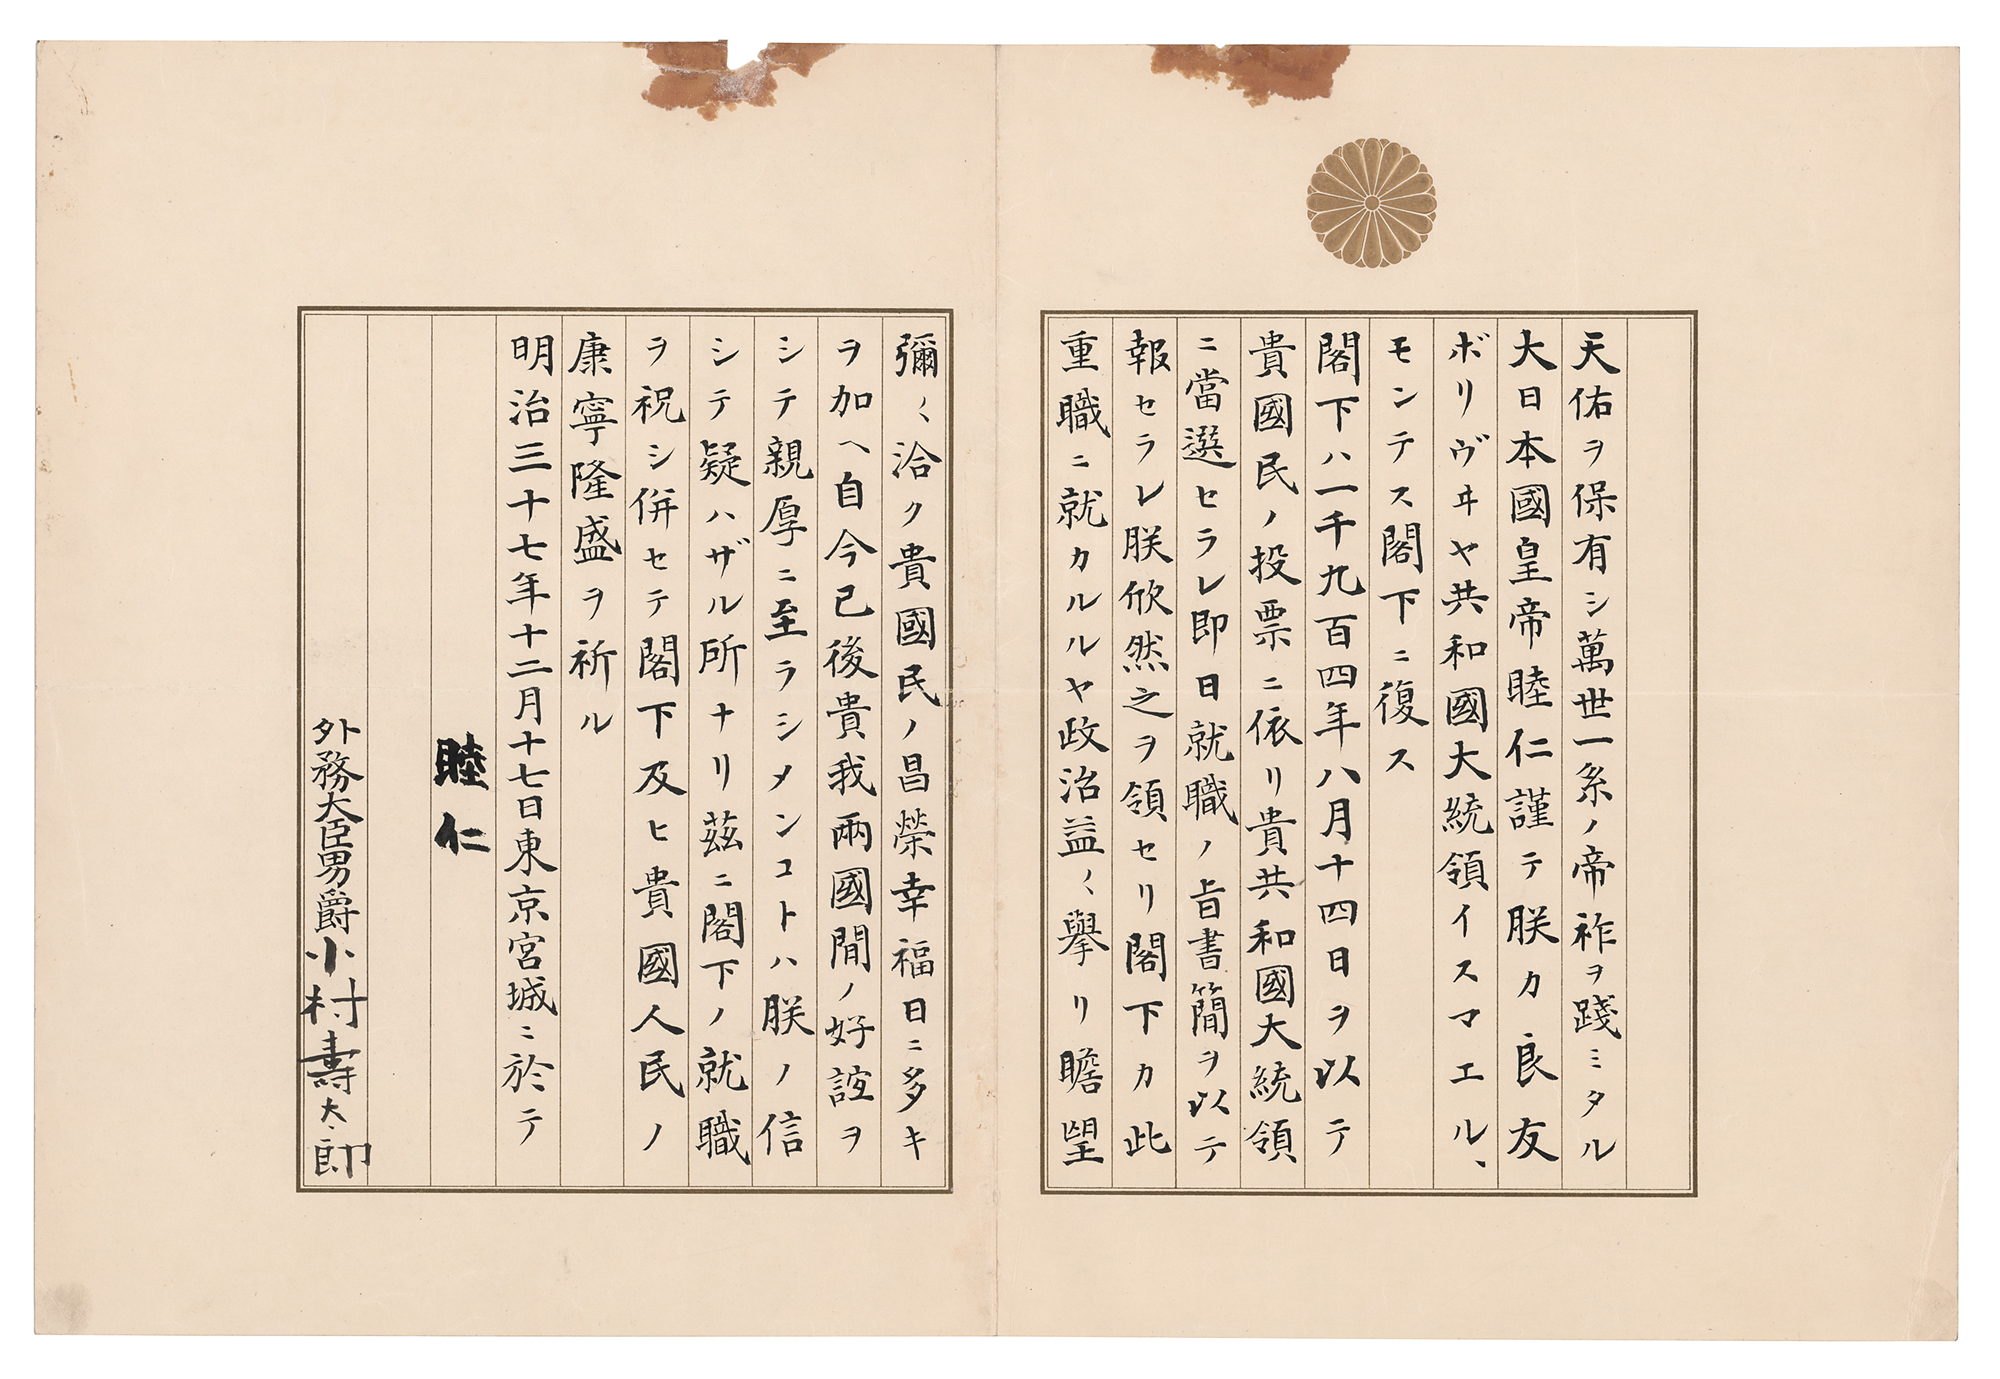 天佑ヲ保有シ萬世一系ノ帝祚ヲ踐ミタル
大日本國皇帝睦仁謹テ朕カ良友
ボリヴヰヤ共和國大統領イスマエル、
モンテス閣下ニ復ス
閣下ハ一千九百四年八月十四日ヲ以テ
貴國民ノ投票ニ依リ貴共和國大統領
ニ當選セラレ即日就職ノ旨書簡ヲ以テ
報セラレ朕欣然之ヲ領セリ閣下カ此
重職ニ就カルルヤ政治益〻擧リ瞻望
彌〻洽ク貴國民ノ昌榮幸福日ニ多キ
ヲ加ヘ自今已後貴我兩國間ノ好誼ヲ
シテ親厚ニ至ラシメンコトハ朕ノ信
シテ疑ハザル所ナリ茲ニ閣下ノ就職
ヲ祝シ併セテ閣下及ヒ貴國人民ノ
康寧隆盛ヲ祈ル
明治三十七年十二月十七日東京宮城ニ於テ
睦仁
外務大臣男爵小村壽太郎